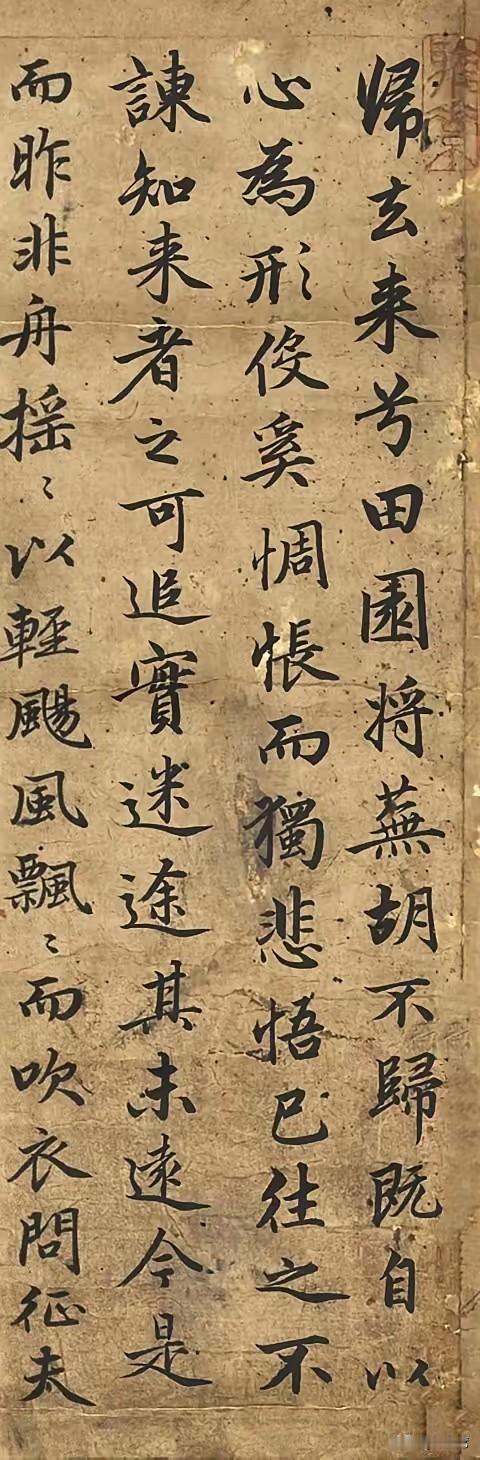 帰去来兮田園将蕪胡不歸既自以
心為形役奚惆悵而獨悲悟已往之不
諫知来者之可追實迷途其未遠今是
而昨非舟揺〻以輕颺風飄〻而吹衣問征夫